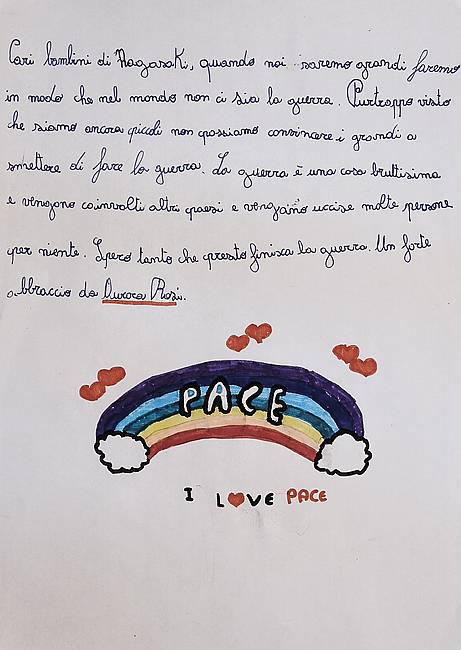 Cari bambini di Nagasaki, quando noi saremo grandi faremo
in modo che nel mondo non ci sia la guerra. Purtroppo visto
che siamo ancora piccoli non possiamo convincere i grandi a
smettere di fare la guerra. La guerra è una cosa bruttissima
e vengono coinvolti altri paesi e vengano uccise molte persone
per niente. Spero tanto che presto finisca la guerra. Un forte
abbraccio da Aurora Rosi.
PACE
I LOVE PACE